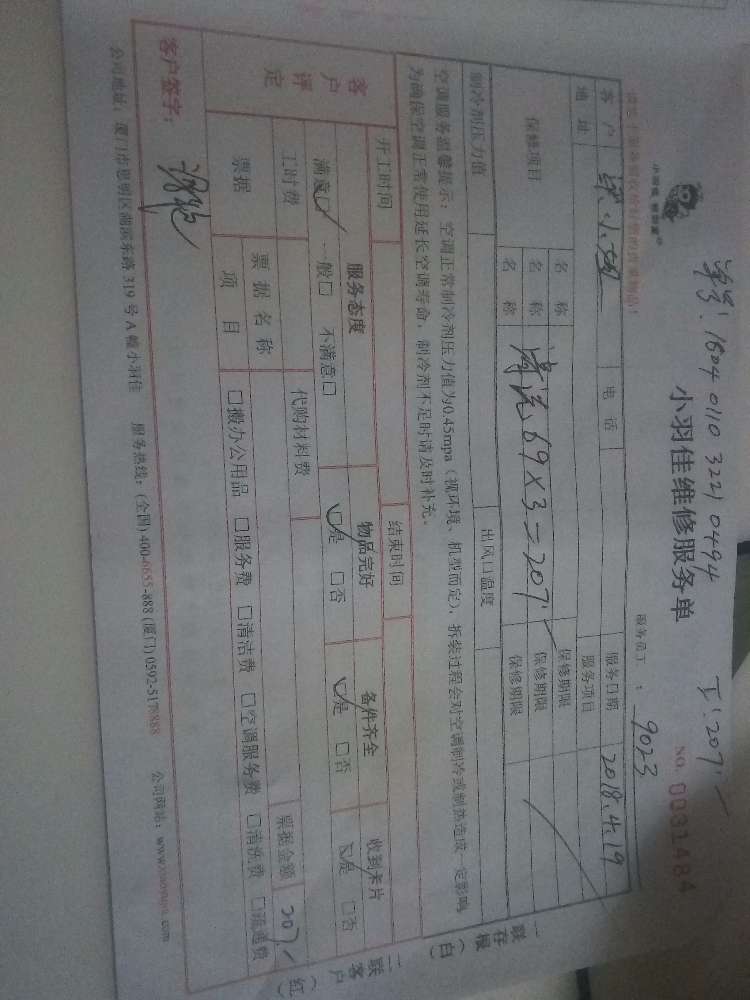 单号：1804 0110 3221 0494
工：207
小羽佳维修服务单
NO. 0031484
服务员工：9023
客户 电话 服务日期 2018.4.19
地址 服务项目
保修项目 名称 保修期限
名称 清洗69×3=207 保修期限
名称 保修期限
制冷剂压力值 出风口温度
空调服务温馨提示：空调正常制冷剂压力值为0.45mpa（视环境、机型而定），拆装过程会对空调制冷或制热造成一定影响
为确保空调正常使用延长空调寿命，制冷剂不足时请及时补充。
开工时间 结束时间
客户评定 服务态度 物品完好 备件齐全 收到卡片
满意□✓ 一般□ 不满意□ ☑是 □否 ☑是 □否 ☑是 □否
工时费 代购材料费 票据金额 207
票据 票据名称
项目 □搬办公用品 □服务费 □清洁费 □空调服务费 □清洗费 □流通费
客户签字：
公司地址：厦门市思明区湖滨东路319号A幢小羽佳 服务热线：(全国)400-6655-888 (厦门)0592-5178888 公司网站：www.xiaoyujia.com
一联存根（白）
二联客户（红）